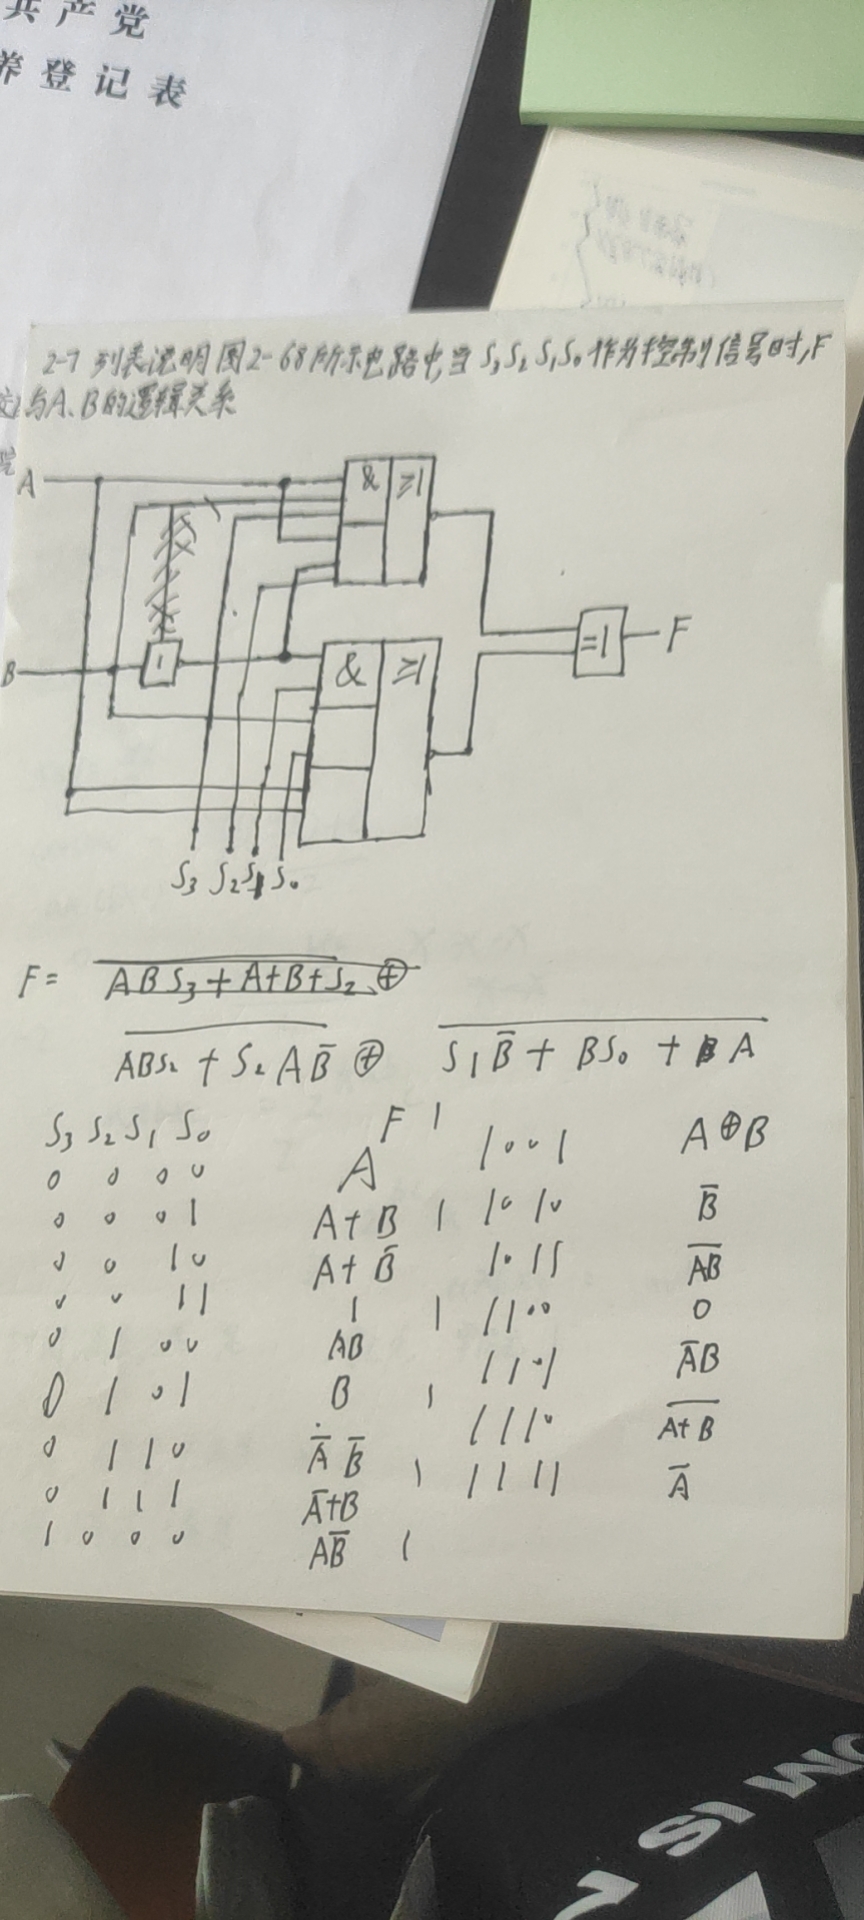 共产党
养登记表
2-7 列表说明图2-68所示电路中,当 S₃S₂S₁S₀ 作为控制信号时,F
与A、B的逻辑关系
A
& ≥1
=1 F
B 1
& ≥1
S₃ S₂ S₁ S₀
F = \overline{ABS₃ + A+B+S₂} ⊕
\overline{ABS₂ + S₂A\overline{B}} ⊕ \overline{S₁\overline{B} + BS₀ + A}
S₃ S₂ S₁ S₀ F 1 1001 A⊕B
0 0 0 0 A
0 0 0 1 A+B 1 1010 \overline{B}
0 0 1 0 A+\overline{B} 1011 \overline{AB}
0 0 1 1 1 1 1100 0
0 1 0 0 AB 1101 \overline{A}B
0 1 0 1 B 1 1110 \overline{A+B}
0 1 1 0 \overline{A} \overline{B} 1 1111 \overline{A}
0 1 1 1 \overline{A}+B
1 0 0 0 A\overline{B} 1
OM IS